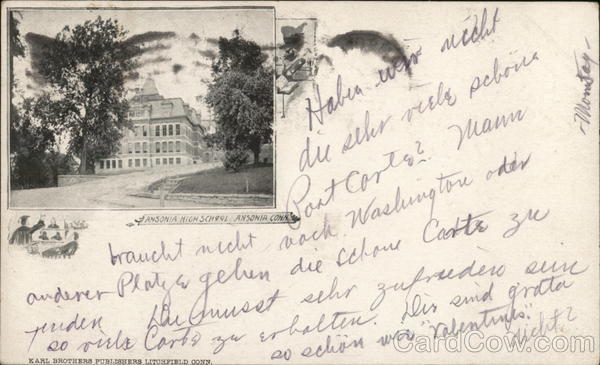 Montag
Haben wir nicht
die sehr viele schöne
Post Carte? Mann
ANSONIA HIGH SCHOOL, ANSONIA, CONN.
braucht nicht nach Washington oder
anderer Platze gehen die schöne Carte zu
finden. Du musst sehr zufrieden sein
so viele Carte zu erhalten. Die sind grata
so schön wie "valentines"
nicht?
KARL BROTHERS PUBLISHERS LITCHFIELD CONN.
CardCow.com